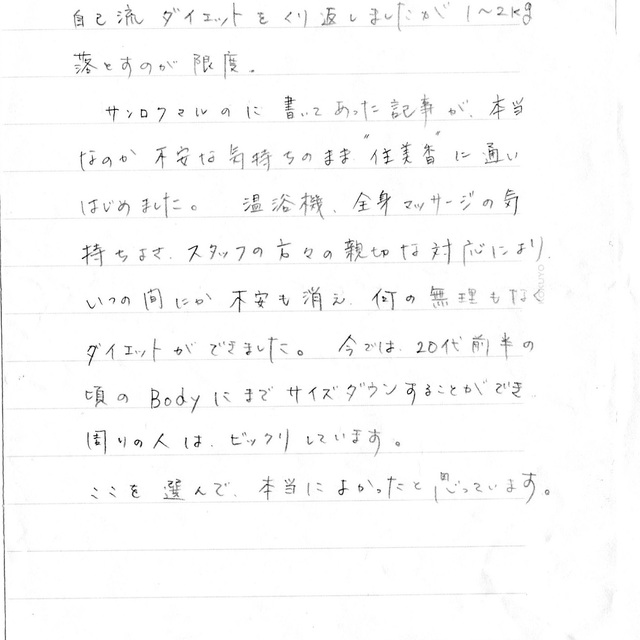 自己流ダイエットをくり返しましたが 1〜2kg
落とすのが限度。
サンロクマルのに書いてあった記事が、本当
なのか不安な気持ちのまま"佳美香"に通い
はじめました。 温浴機、全身マッサージの気
持ちよさ、スタッフの方々の親切な対応により、
いつの間にか不安も消え、何の無理もなく
ダイエットができました。 今では、20代前半の
頃のBodyにまでサイズダウンすることができ
周りの人は、ビックリしています。
ここを選んで、本当によかったと思っています。
KOKUYO